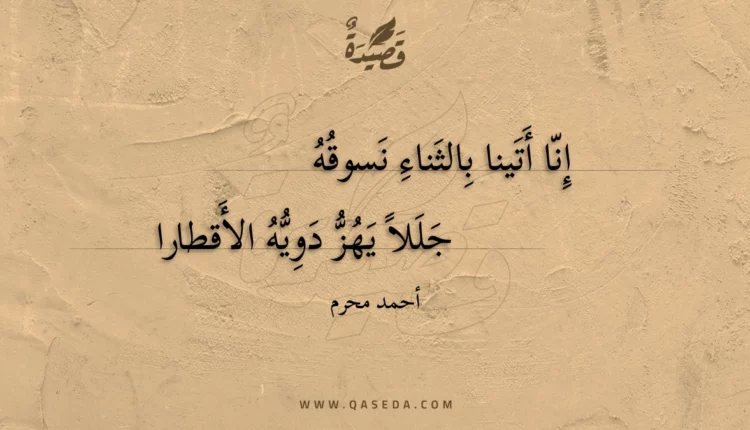 قَصِيدَةٌ
إِنّا أَتَينا بِالثَناءِ نَسوقُهُ
جَلَلاً يَهُزُّ دَوِيُّهُ الأَقطارا
أحمد محرم
WWW.QASEDA.COM